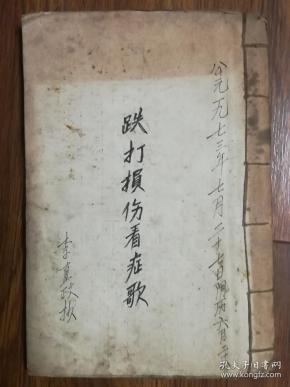 公元一九七三年七月二十七日
跌打損伤看症歌
李
抄
孔夫子旧书网